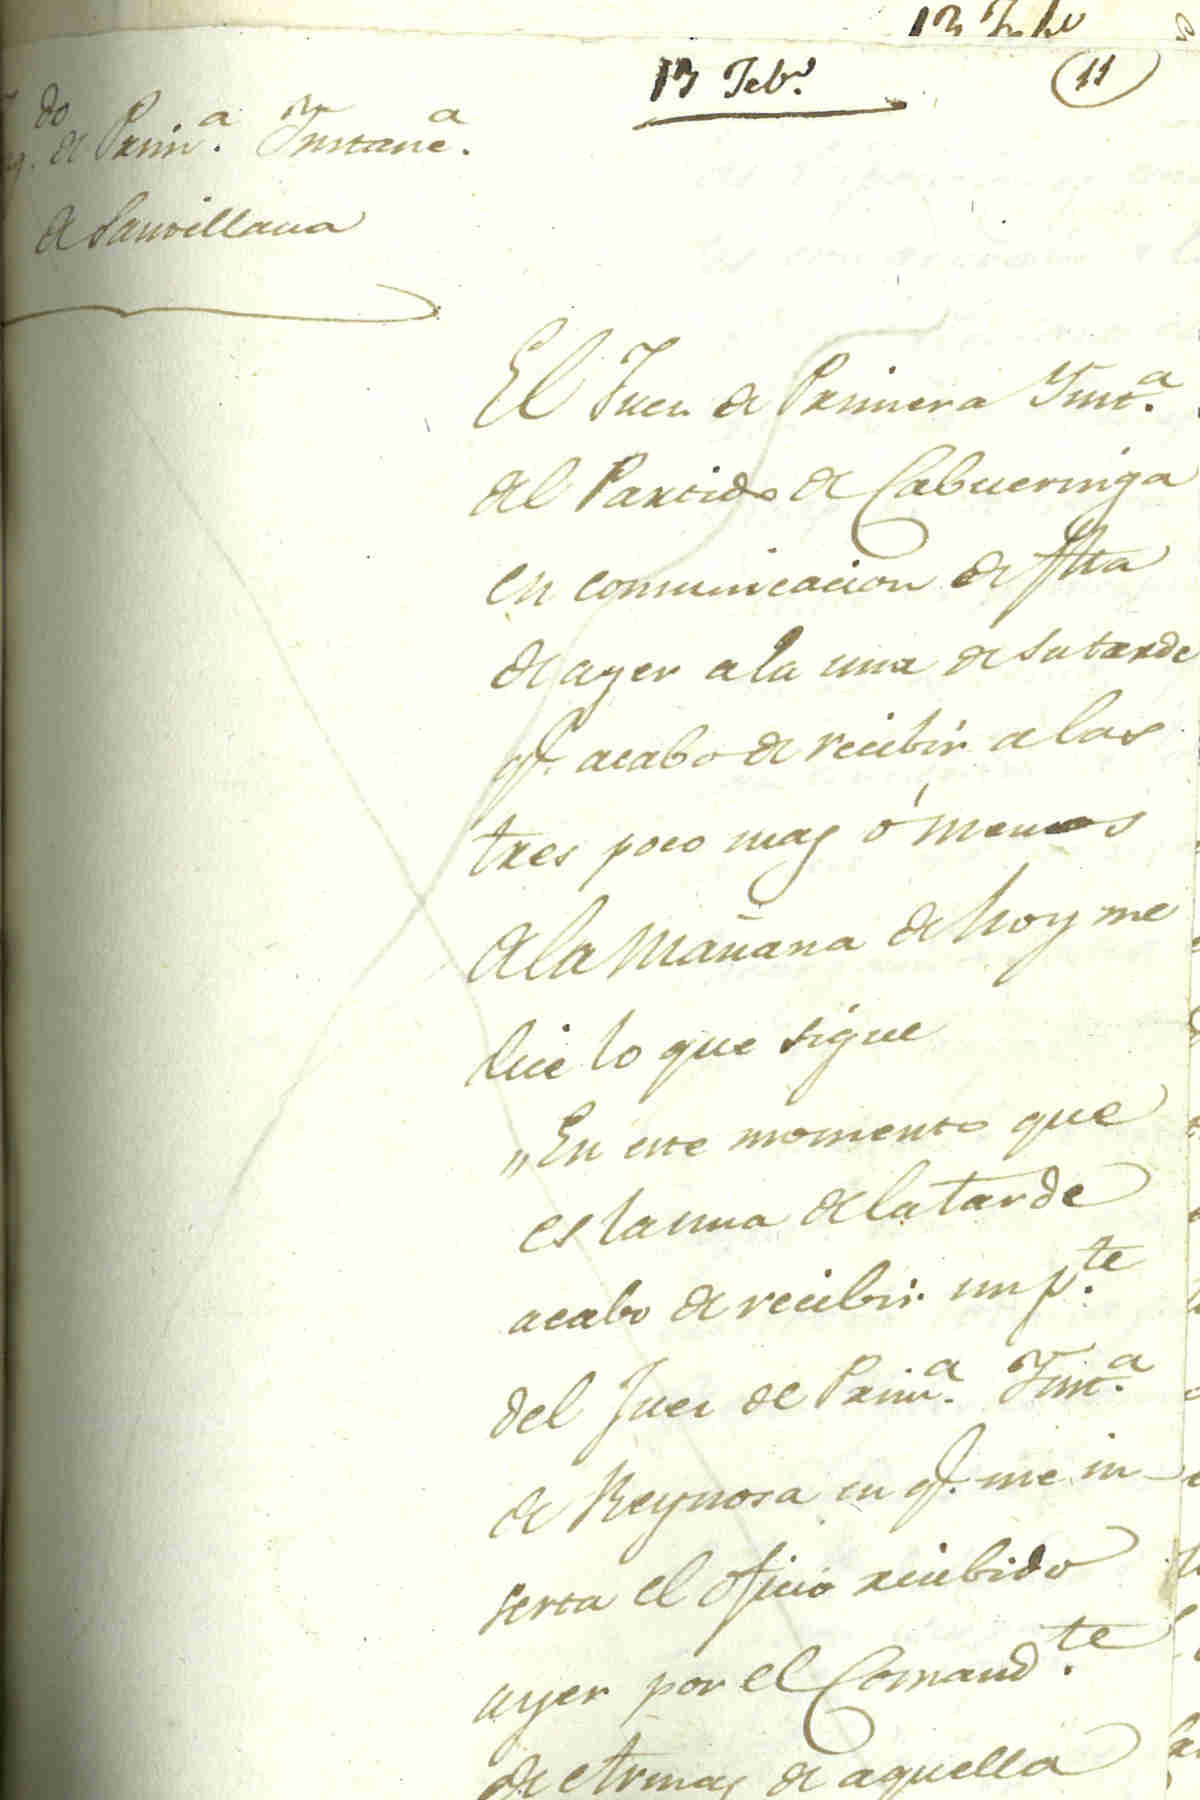 13 Feb.o
11
do
de Prim.a Instanc.a
de Santillana
El Juez de Primera Inst.a
del Partido de Cabuerniga
en comunicacion de fha
de ayer a la una de su tarde
q.e acabo de recibir a las
tres poco mas ó menos
de la mañana de hoy me
dice lo que sigue
„En este momento que
es la una de la tarde
acabo de recibir un p.te
del Juez de Prim.a Inst.a
de Reynosa en q.e me in-
serta el oficio recibido
ayer por el Comand.te
de Armas de aquella